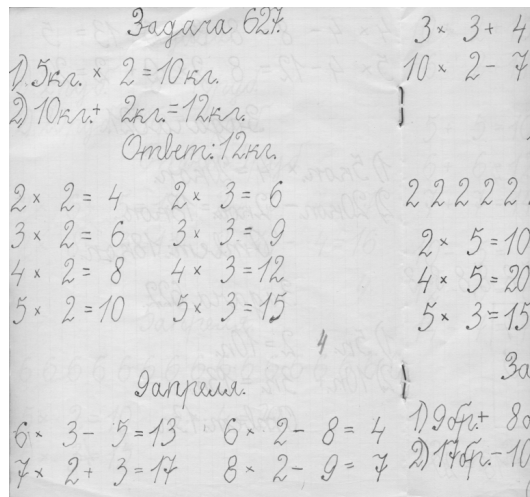 Задача 627.
1) 5кг. × 2 = 10кг.
2) 10кг. + 2кг. = 12кг.
Ответ: 12кг.
2 × 2 = 4 2 × 3 = 6
3 × 2 = 6 3 × 3 = 9
4 × 2 = 8 4 × 3 = 12
5 × 2 = 10 5 × 3 = 15
4
9 апреля.
6 × 3 - 5 = 13 6 × 2 - 8 = 4
7 × 2 + 3 = 17 8 × 2 - 9 = 7
3 × 3 + 4
10 × 2 - 7
2 2 2 2 2 2
2 × 5 = 10
4 × 5 = 20
5 × 3 = 15
За
1) 9бр. + 8б
2) 17бр. - 10